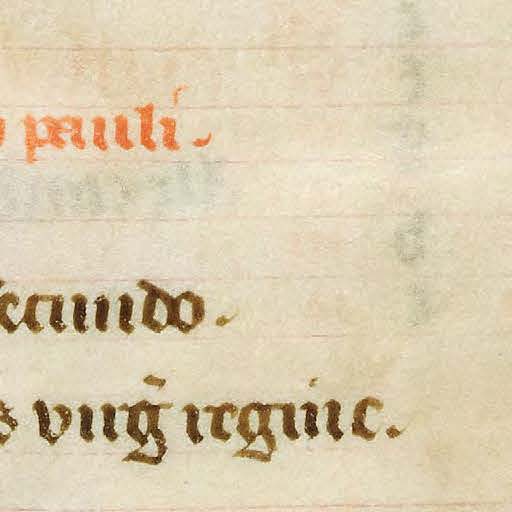 pauli.
secundo.
virg̃ regine.